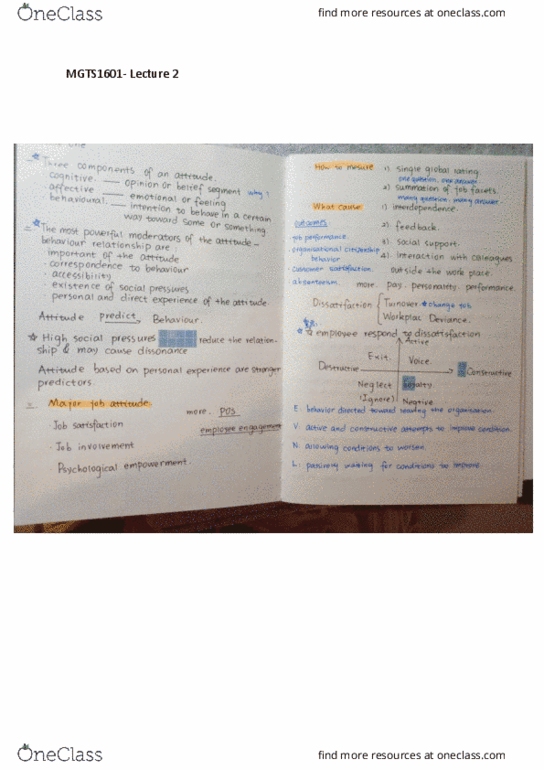 OneClass
find more resources at oneclass.com
MGTS1601- Lecture 2
Three components of an attitude.
cognitive. ___ opinion or belief segment why?
affective ___ emotional or feeling
behavioural. ___ intention to behave in a certain
way toward some or something
The most powerful moderators of the attitude -
behaviour relationship are :
important of the attitude
· correspondence to behaviour
· accessibility
· existence of social pressures
· personal and direct experience of the attitude.
Attitude predict Behaviour.
High social pressures reduce the relation-
ship & may cause dissonance
Attitude based on personal experience are stronger
predictors.
Major job attitude.
· Job satisfaction
· Job involvement
· Psychological empowerment.
more. POS
employee engagement
How to mesure 1) single global rating.
one question, one answer.
2) summation of job facets.
many question, many answer.
What cause: 1) interdependence.
2) feedback.
3) social support.
4) interaction with colleagues
outside the work place.
more. pay. personality. performance.
outcomes
job performance.
organisational citizenship
behavior
customer satisfaction.
absenteism.
Dissatisfaction Turnover change job
Workplac Deviance.
employee respond to dissatisfaction
Active
Exit. Voice.
Destructive Constructive
Neglect Loyalty.
(Ignore) Negative
E: behavior directed toward leaving the organisation.
V: active and constructive attempts to improve condition.
N: allowing conditions to worsen.
L: passively waiting for conditions to improve.
OneClass
find more resources at oneclass.com